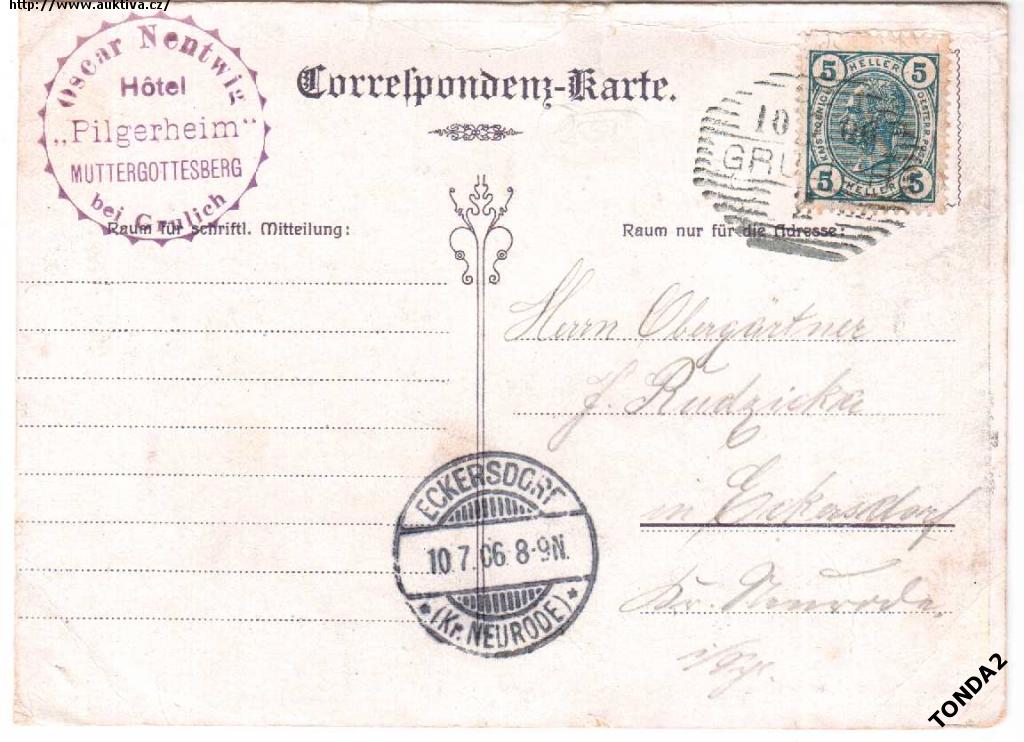 http://www.auktiva.cz/
Oscar Nentwig
Hôtel
„Pilgerheim"
MUTTERGOTTESBERG
bei Grulich
Correspondenz-Karte.
5 HELLER 5
5 HELLER 5
10
GRU
Raum für schriftl. Mitteilung:
Raum nur für die Adresse:
Herrn Obergärtner
J. Rudzicka
in Eckersdorf
Kr. Neurode
ECKERSDORF
10.7.06. 8-9N.
* (Kr. NEURODE) *
TONDA2